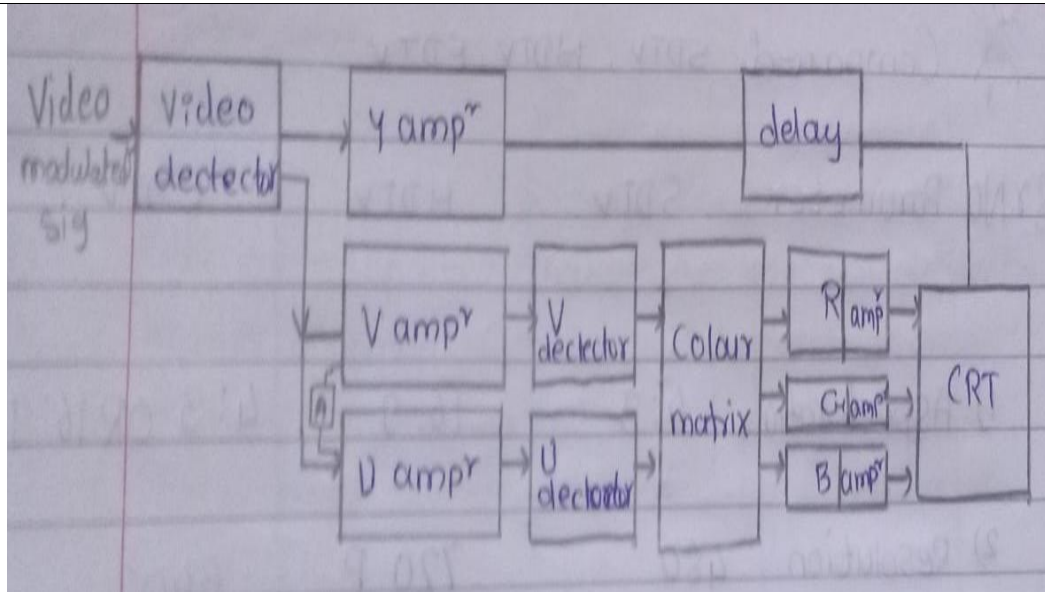 Video
modulated
sig
Video
dectector
Y ampr
delay
V ampr
V
dectector
Colour
matrix
R ampr
G ampr
B ampr
CRT
U ampr
U